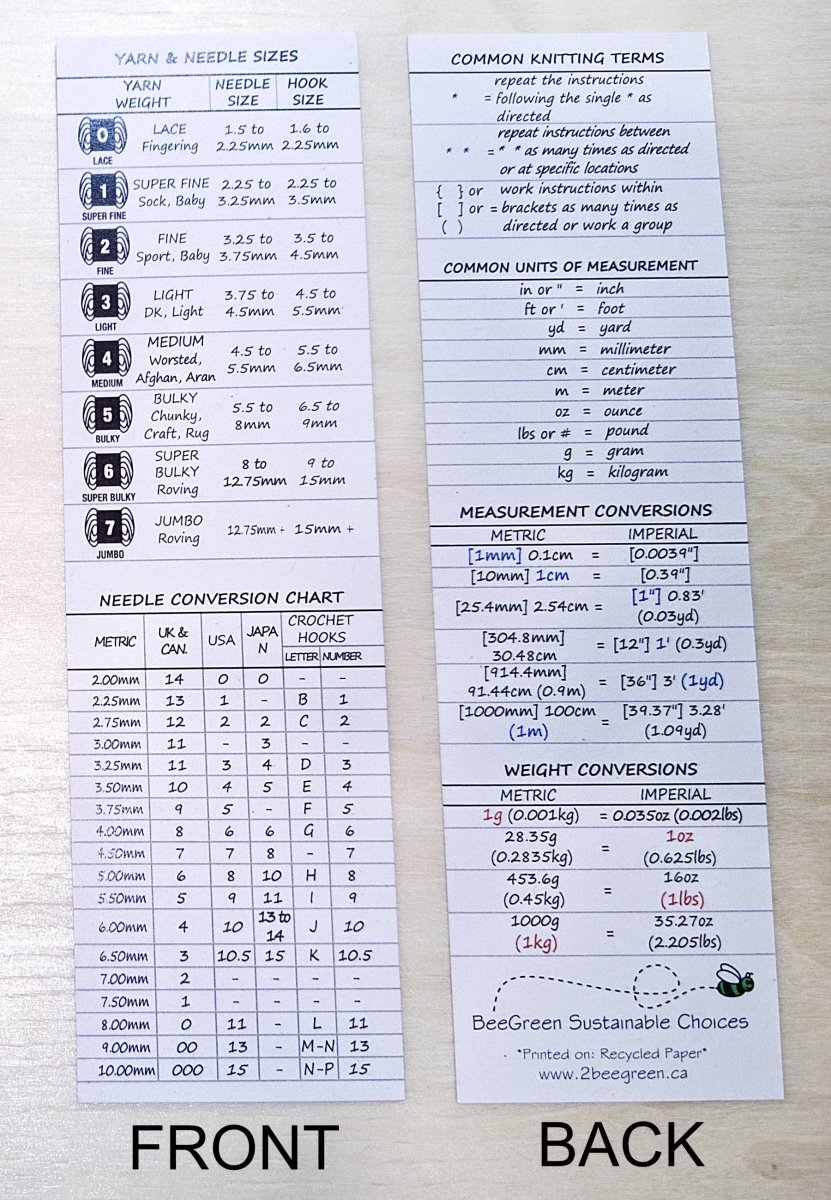 YARN & NEEDLE SIZES
YARN WEIGHT NEEDLE SIZE HOOK SIZE
0 LACE LACE Fingering 1.5 to 2.25mm 1.6 to 2.25mm
1 SUPER FINE SUPER FINE Sock, Baby 2.25 to 3.25mm 2.25 to 3.5mm
2 FINE FINE Sport, Baby 3.25 to 3.75mm 3.5 to 4.5mm
3 LIGHT LIGHT DK, Light 3.75 to 4.5mm 4.5 to 5.5mm
4 MEDIUM MEDIUM Worsted, Afghan, Aran 4.5 to 5.5mm 5.5 to 6.5mm
5 BULKY BULKY Chunky, Craft, Rug 5.5 to 8mm 6.5 to 9mm
6 SUPER BULKY SUPER BULKY Roving 8 to 12.75mm 9 to 15mm
7 JUMBO JUMBO Roving 12.75mm + 15mm +
NEEDLE CONVERSION CHART
METRIC UK & CAN. USA JAPAN CROCHET HOOKS
LETTER NUMBER
2.00mm 14 0 0 - -
2.25mm 13 1 - B 1
2.75mm 12 2 2 C 2
3.00mm 11 - 3 - -
3.25mm 11 3 4 D 3
3.50mm 10 4 5 E 4
3.75mm 9 5 - F 5
4.00mm 8 6 6 G 6
4.50mm 7 7 8 - 7
5.00mm 6 8 10 H 8
5.50mm 5 9 11 I 9
6.00mm 4 10 13 to 14 J 10
6.50mm 3 10.5 15 K 10.5
7.00mm 2 - - - -
7.50mm 1 - - - -
8.00mm 0 11 - L 11
9.00mm 00 13 - M-N 13
10.00mm 000 15 - N-P 15
FRONT
COMMON KNITTING TERMS
repeat the instructions
* = following the single * as
directed
repeat instructions between
* * = * * as many times as directed
or at specific locations
{ } or work instructions within
[ ] or = brackets as many times as
( ) directed or work a group
COMMON UNITS OF MEASUREMENT
in or " = inch
ft or ' = foot
yd = yard
mm = millimeter
cm = centimeter
m = meter
oz = ounce
lbs or # = pound
g = gram
kg = kilogram
MEASUREMENT CONVERSIONS
METRIC IMPERIAL
[1mm] 0.1cm = [0.0039"]
[10mm] 1cm = [0.39"]
[25.4mm] 2.54cm = [1"] 0.83' (0.03yd)
[304.8mm] 30.48cm = [12"] 1' (0.3yd)
[914.4mm] 91.44cm (0.9m) = [36"] 3' (1yd)
[1000mm] 100cm (1m) = [39.37"] 3.28' (1.09yd)
WEIGHT CONVERSIONS
METRIC IMPERIAL
1g (0.001kg) = 0.035oz (0.002lbs)
28.35g (0.2835kg) = 1oz (0.625lbs)
453.6g (0.45kg) = 16oz (1lbs)
1000g (1kg) = 35.27oz (2.205lbs)
BeeGreen Sustainable Choices
*Printed on: Recycled Paper*
www.2beegreen.ca
BACK